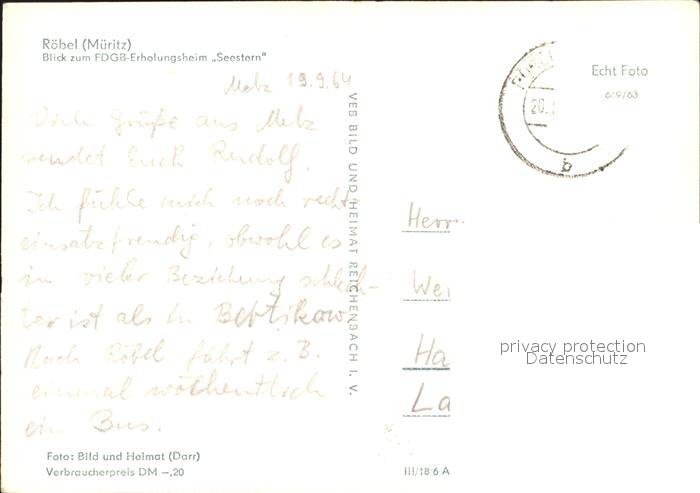 Röbel (Müritz)
Blick zum FDGB-Erholungsheim „Seestern"
Melz 19.9.64
Viele Grüße aus Melz
sendet Euch Rudolf.
Ich fühle mich noch recht
einsatzfreudig, obwohl es
in vieler Beziehung schlech-
ter ist als in Bertikow.
Nach Röbel fährt z. B.
einmal wöchentlich
ein Bus.
Foto: Bild und Heimat (Darr)
Verbraucherpreis DM –,20
VEB BILD UND HEIMAT REICHENBACH I. V.
Echt Foto
689/63
20.
b
Herrn
Wei
Ha
La
privacy protection
Datenschutz
III/18/6 A